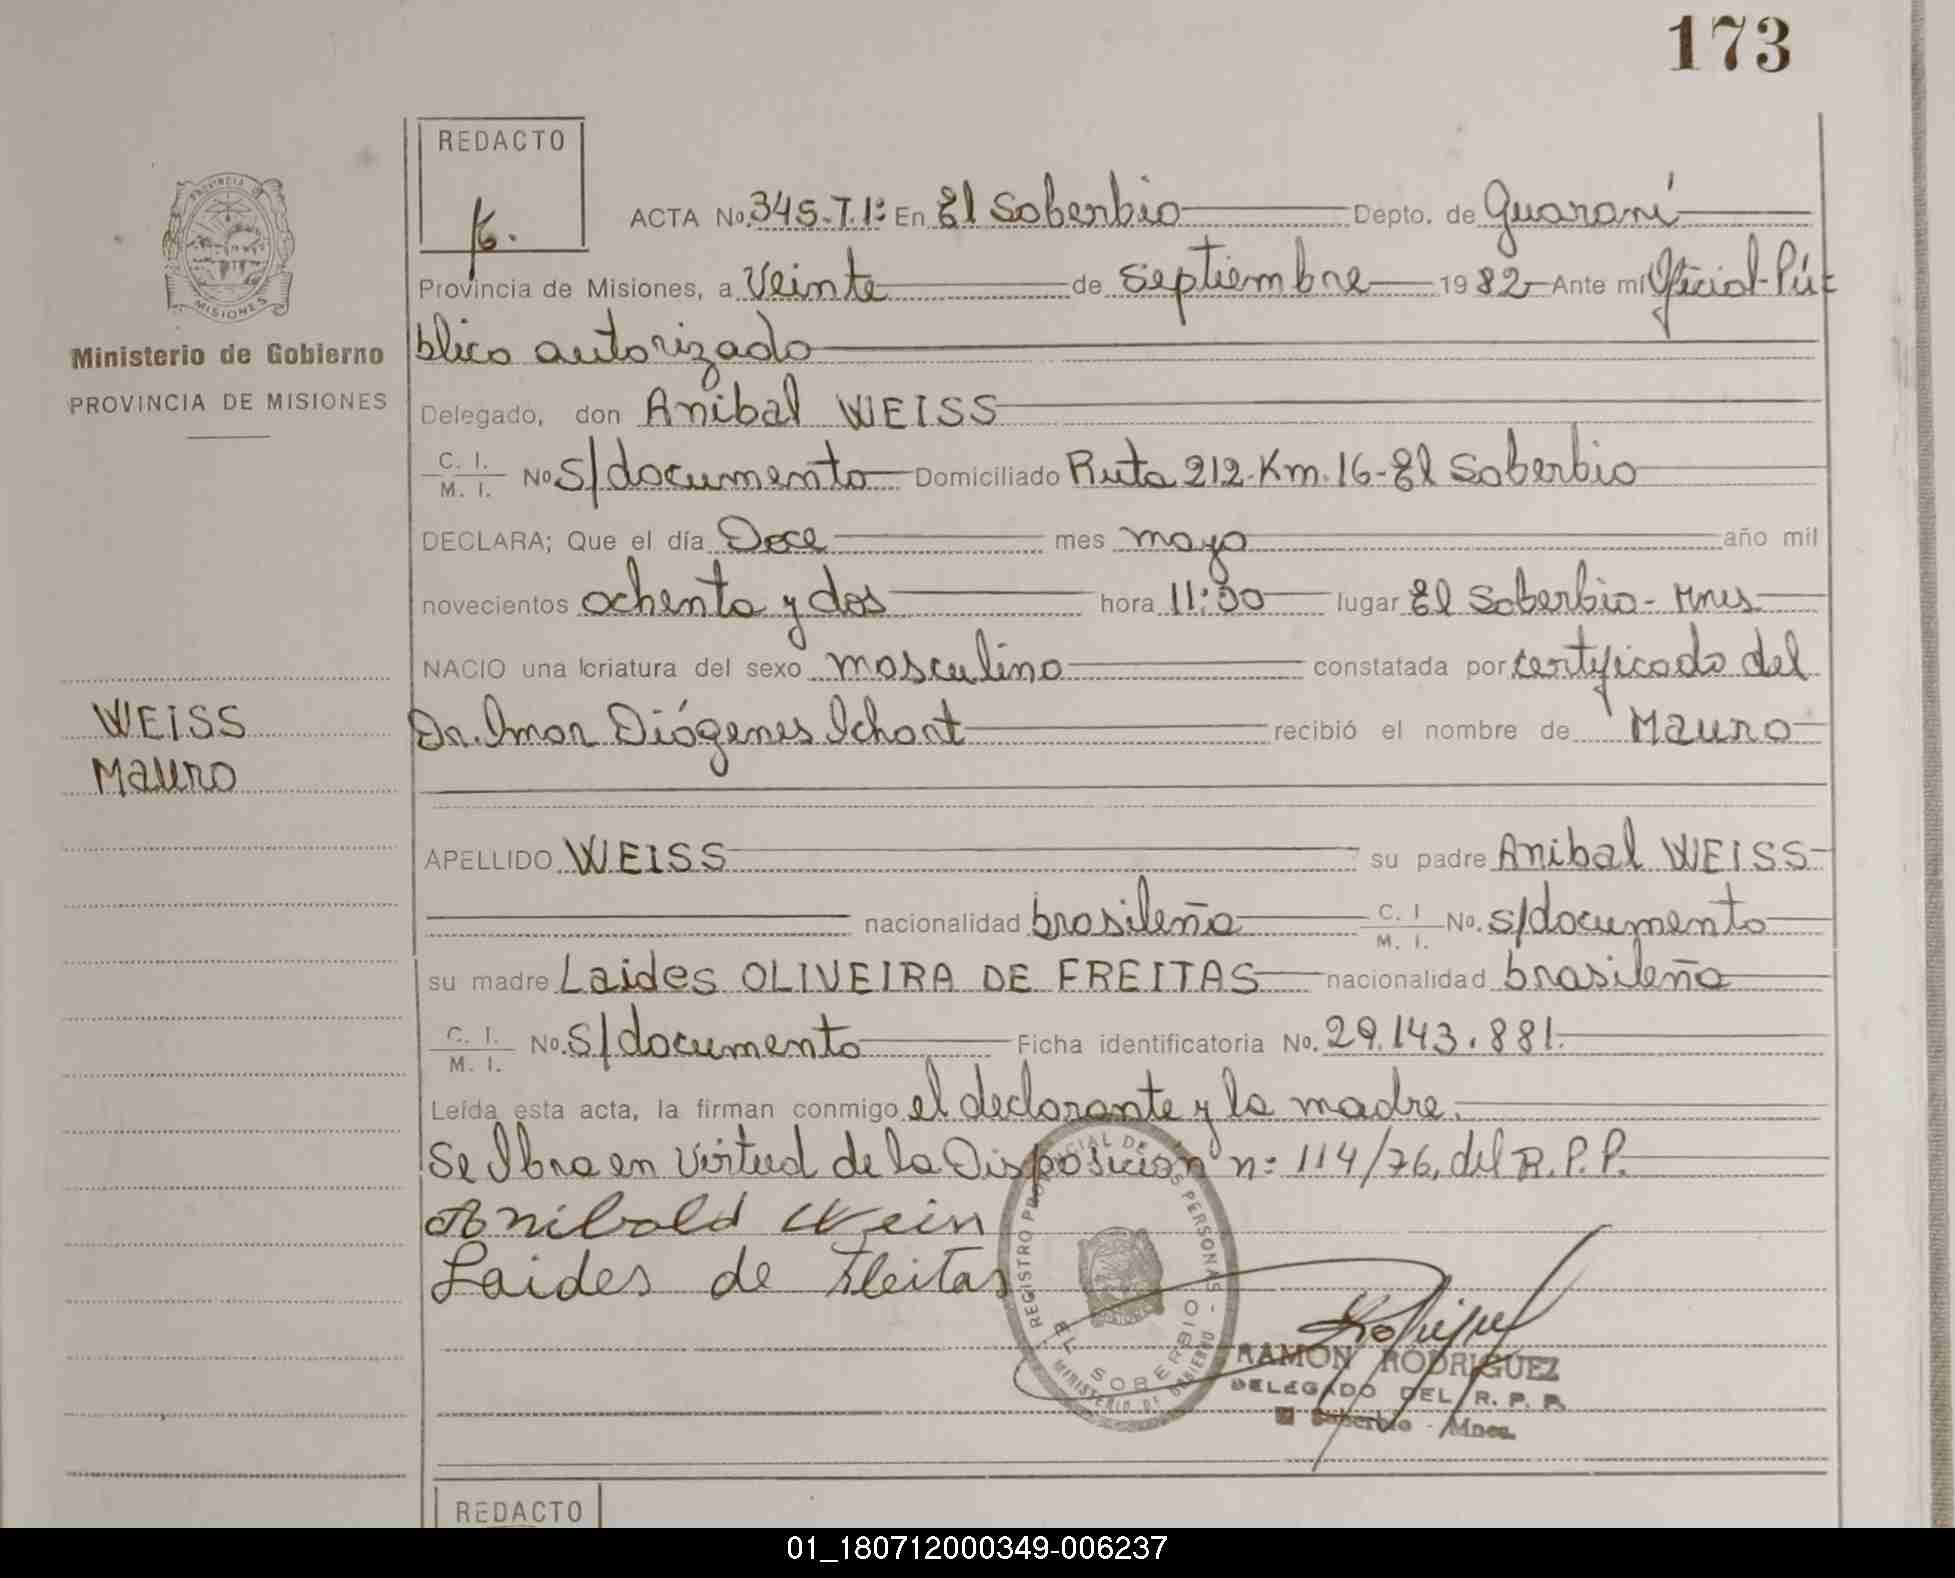 173
REDACTO
ACTA No. 345-T.1º En El Soberbio Depto. de Guaraní
Provincia de Misiones, a Veinte de septiembre 1982 Ante mí Oficial Pú-
blico autorizado
Delegado, don Anibal WEISS
C. I. / M. I. No s/documento Domiciliado Ruta 212-Km.16-El Soberbio
DECLARA; Que el día Doce mes mayo año mil
novecientos ochenta y dos hora 11:00 lugar El Soberbio - Mnes
NACIO una criatura del sexo masculino constatada por certificado del
Dr. Imar Diógenes Ichart recibió el nombre de Mauro
APELLIDO WEISS su padre Anibal WEISS
nacionalidad brasileña C. I. / M. I. No. s/documento
su madre Laides OLIVEIRA DE FREITAS nacionalidad brasileña
C. I. / M. I. No. s/documento Ficha identificatoria No. 29.143.881.
Leída esta acta, la firman conmigo el declarante y la madre.
Se labra en virtud de la Disposición nº 114/76, del R.P.P.
Anibald Wein
Laides de Fleitas
REGISTRO PROVINCIAL DE LAS PERSONAS -
EL SOBERBIO
MINISTERIO DE GOBIERNO
RAMON RODRIGUEZ
DELEGADO DEL R. P. P.
El Soberbio - Mnes.
PROVINCIA DE
MISIONES
Ministerio de Gobierno
PROVINCIA DE MISIONES
WEISS
Mauro
REDACTO
01_180712000349-006237